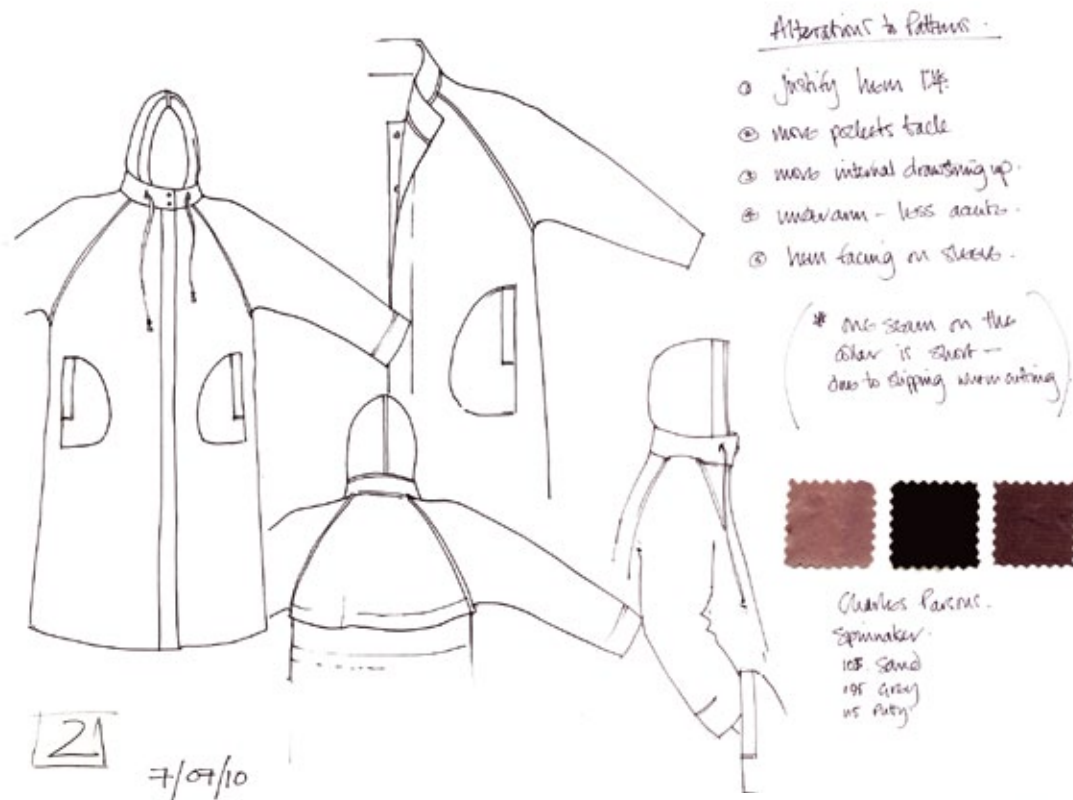 Alterations to Patterns.
① justify hem
② move pockets back
③ move internal drawstring up.
④ underarm - less acute.
⑤ hem facing on sleeve.
* one seam on the
collar is short -
due to slipping when cutting
Charles Parsons.
Spinnaker.
Sand
195 Grey
115 Puty
21
7/07/10